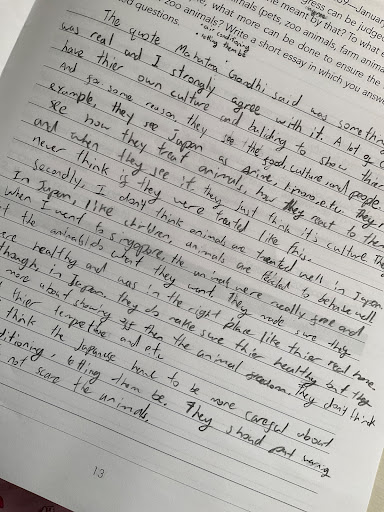 69—January
gress can be judged
meant by that? To what
animals (pets, zoo animals, farm animals
, what more can be done to ensure the
zoo animals? Write a short essay in which you answ
ted questions.
letting them be
The quote Mahatma Gandhi said was somethin
was real and I strongly agree with it. A lot of c
have thier own culture and building to show thier
And for some reason they see the food, culture and people.
example, they see Japan as Anime, kimono, etc. They
see how they treat animals, how they react to the
and when they see it, they just think it's culture. The
never think if they were treated like this.
Secondly, I don't think animals are treated well in Japan
In Japan, like children, animals are to behave well
When I went to Singapore, the animals were really free and
the animals what they want. They made sure they
ere healthy and was in the right place like thier real home.
though, in Japan, they do make sure thier healthy but they
more about showing off then the animal. They don't think
thier tempeture and etc.
think the Japanese have to be more careful about
ditioning, letting them be. They shoud put warning
not scare the animals.
13